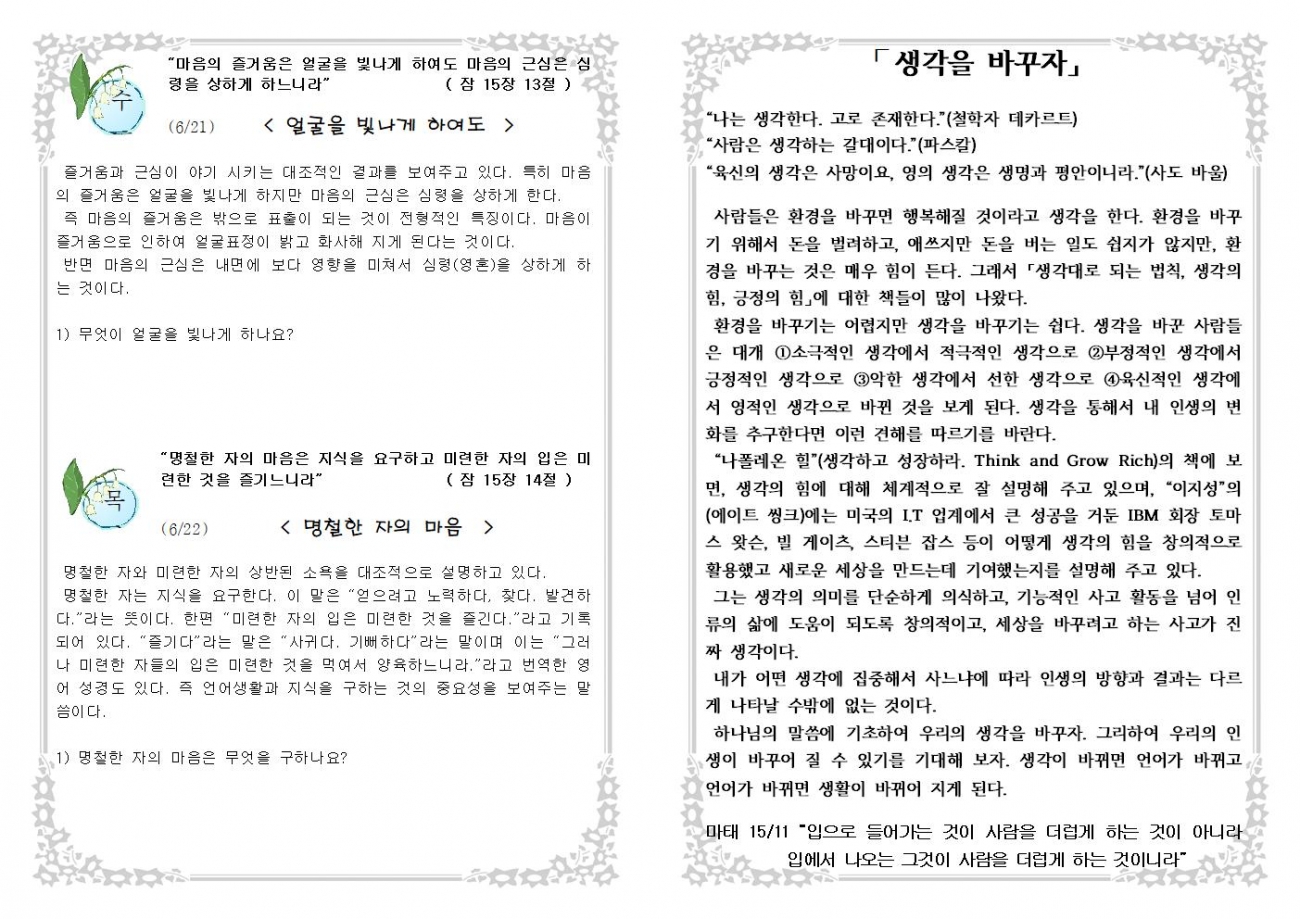 “마음의 즐거움은 얼굴을 빛나게 하여도 마음의 근심은 심
령을 상하게 하느니라” ( 잠 15장 13절 )
수
(6/21) < 얼굴을 빛나게 하여도 >
즐거움과 근심이 야기 시키는 대조적인 결과를 보여주고 있다. 특히 마음
의 즐거움은 얼굴을 빛나게 하지만 마음의 근심은 심령을 상하게 한다.
즉 마음의 즐거움은 밖으로 표출이 되는 것이 전형적인 특징이다. 마음이
즐거움으로 인하여 얼굴표정이 밝고 화사해 지게 된다는 것이다.
반면 마음의 근심은 내면에 보다 영향을 미쳐서 심령(영혼)을 상하게 하
는 것이다.
1) 무엇이 얼굴을 빛나게 하나요?
“명철한 자의 마음은 지식을 요구하고 미련한 자의 입은 미
련한 것을 즐기느니라” ( 잠 15장 14절 )
목
(6/22) < 명철한 자의 마음 >
명철한 자와 미련한 자의 상반된 소욕을 대조적으로 설명하고 있다.
명철한 자는 지식을 요구한다. 이 말은 “얻으려고 노력하다, 찾다. 발견하
다.”라는 뜻이다. 한편 “미련한 자의 입은 미련한 것을 즐긴다.”라고 기록
되어 있다. “즐기다”라는 말은 “사귀다. 기뻐하다”라는 말이며 이는 “그러
나 미련한 자들의 입은 미련한 것을 먹여서 양육하느니라.”라고 번역한 영
어 성경도 있다. 즉 언어생활과 지식을 구하는 것의 중요성을 보여주는 말
씀이다.
1) 명철한 자의 마음은 무엇을 구하나요?
「생각을 바꾸자」
“나는 생각한다. 고로 존재한다.”(철학자 데카르트)
“사람은 생각하는 갈대이다.”(파스칼)
“육신의 생각은 사망이요, 영의 생각은 생명과 평안이니라.”(사도 바울)
사람들은 환경을 바꾸면 행복해질 것이라고 생각을 한다. 환경을 바꾸
기 위해서 돈을 벌려하고, 애쓰지만 돈을 버는 일도 쉽지가 않지만, 환
경을 바꾸는 것은 매우 힘이 든다. 그래서 「생각대로 되는 법칙, 생각의
힘, 긍정의 힘」에 대한 책들이 많이 나왔다.
환경을 바꾸기는 어렵지만 생각을 바꾸기는 쉽다. 생각을 바꾼 사람들
은 대개 ①소극적인 생각에서 적극적인 생각으로 ②부정적인 생각에서
긍정적인 생각으로 ③악한 생각에서 선한 생각으로 ④육신적인 생각에
서 영적인 생각으로 바뀐 것을 보게 된다. 생각을 통해서 내 인생의 변
화를 추구한다면 이런 견해를 따르기를 바란다.
“나폴레온 힐”(생각하고 성장하라. Think and Grow Rich)의 책에 보
면, 생각의 힘에 대해 체계적으로 잘 설명해 주고 있으며, “이지성”의
(에이트 씽크)에는 미국의 I.T 업계에서 큰 성공을 거둔 IBM 회장 토마
스 왓슨, 빌 게이츠, 스티븐 잡스 등이 어떻게 생각의 힘을 창의적으로
활용했고 새로운 세상을 만드는데 기여했는지를 설명해 주고 있다.
그는 생각의 의미를 단순하게 의식하고, 기능적인 사고 활동을 넘어 인
류의 삶에 도움이 되도록 창의적이고, 세상을 바꾸려고 하는 사고가 진
짜 생각이다.
내가 어떤 생각에 집중해서 사느냐에 따라 인생의 방향과 결과는 다르
게 나타날 수밖에 없는 것이다.
하나님의 말씀에 기초하여 우리의 생각을 바꾸자. 그리하여 우리의 인
생이 바꾸어 질 수 있기를 기대해 보자. 생각이 바뀌면 언어가 바뀌고
언어가 바뀌면 생활이 바뀌어 지게 된다.
마태 15/11 “입으로 들어가는 것이 사람을 더럽게 하는 것이 아니라
입에서 나오는 그것이 사람을 더럽게 하는 것이니라”